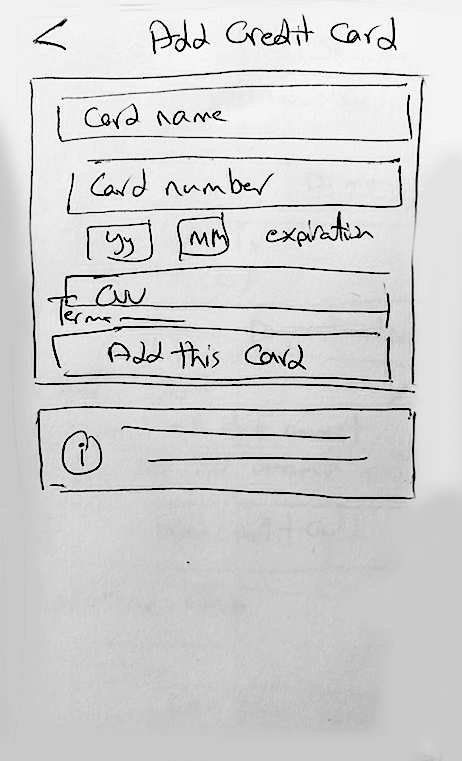 < Add Credit Card
Card name
Card number
YY MM expiration
CVV
Terms
Add this Card
i